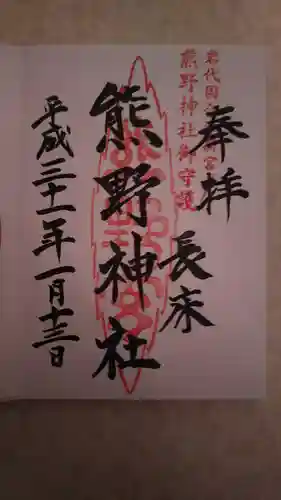 奉拝
岩代国
宮
熊野神社御守護
長床
熊野神社
平成三十一年一月十三日